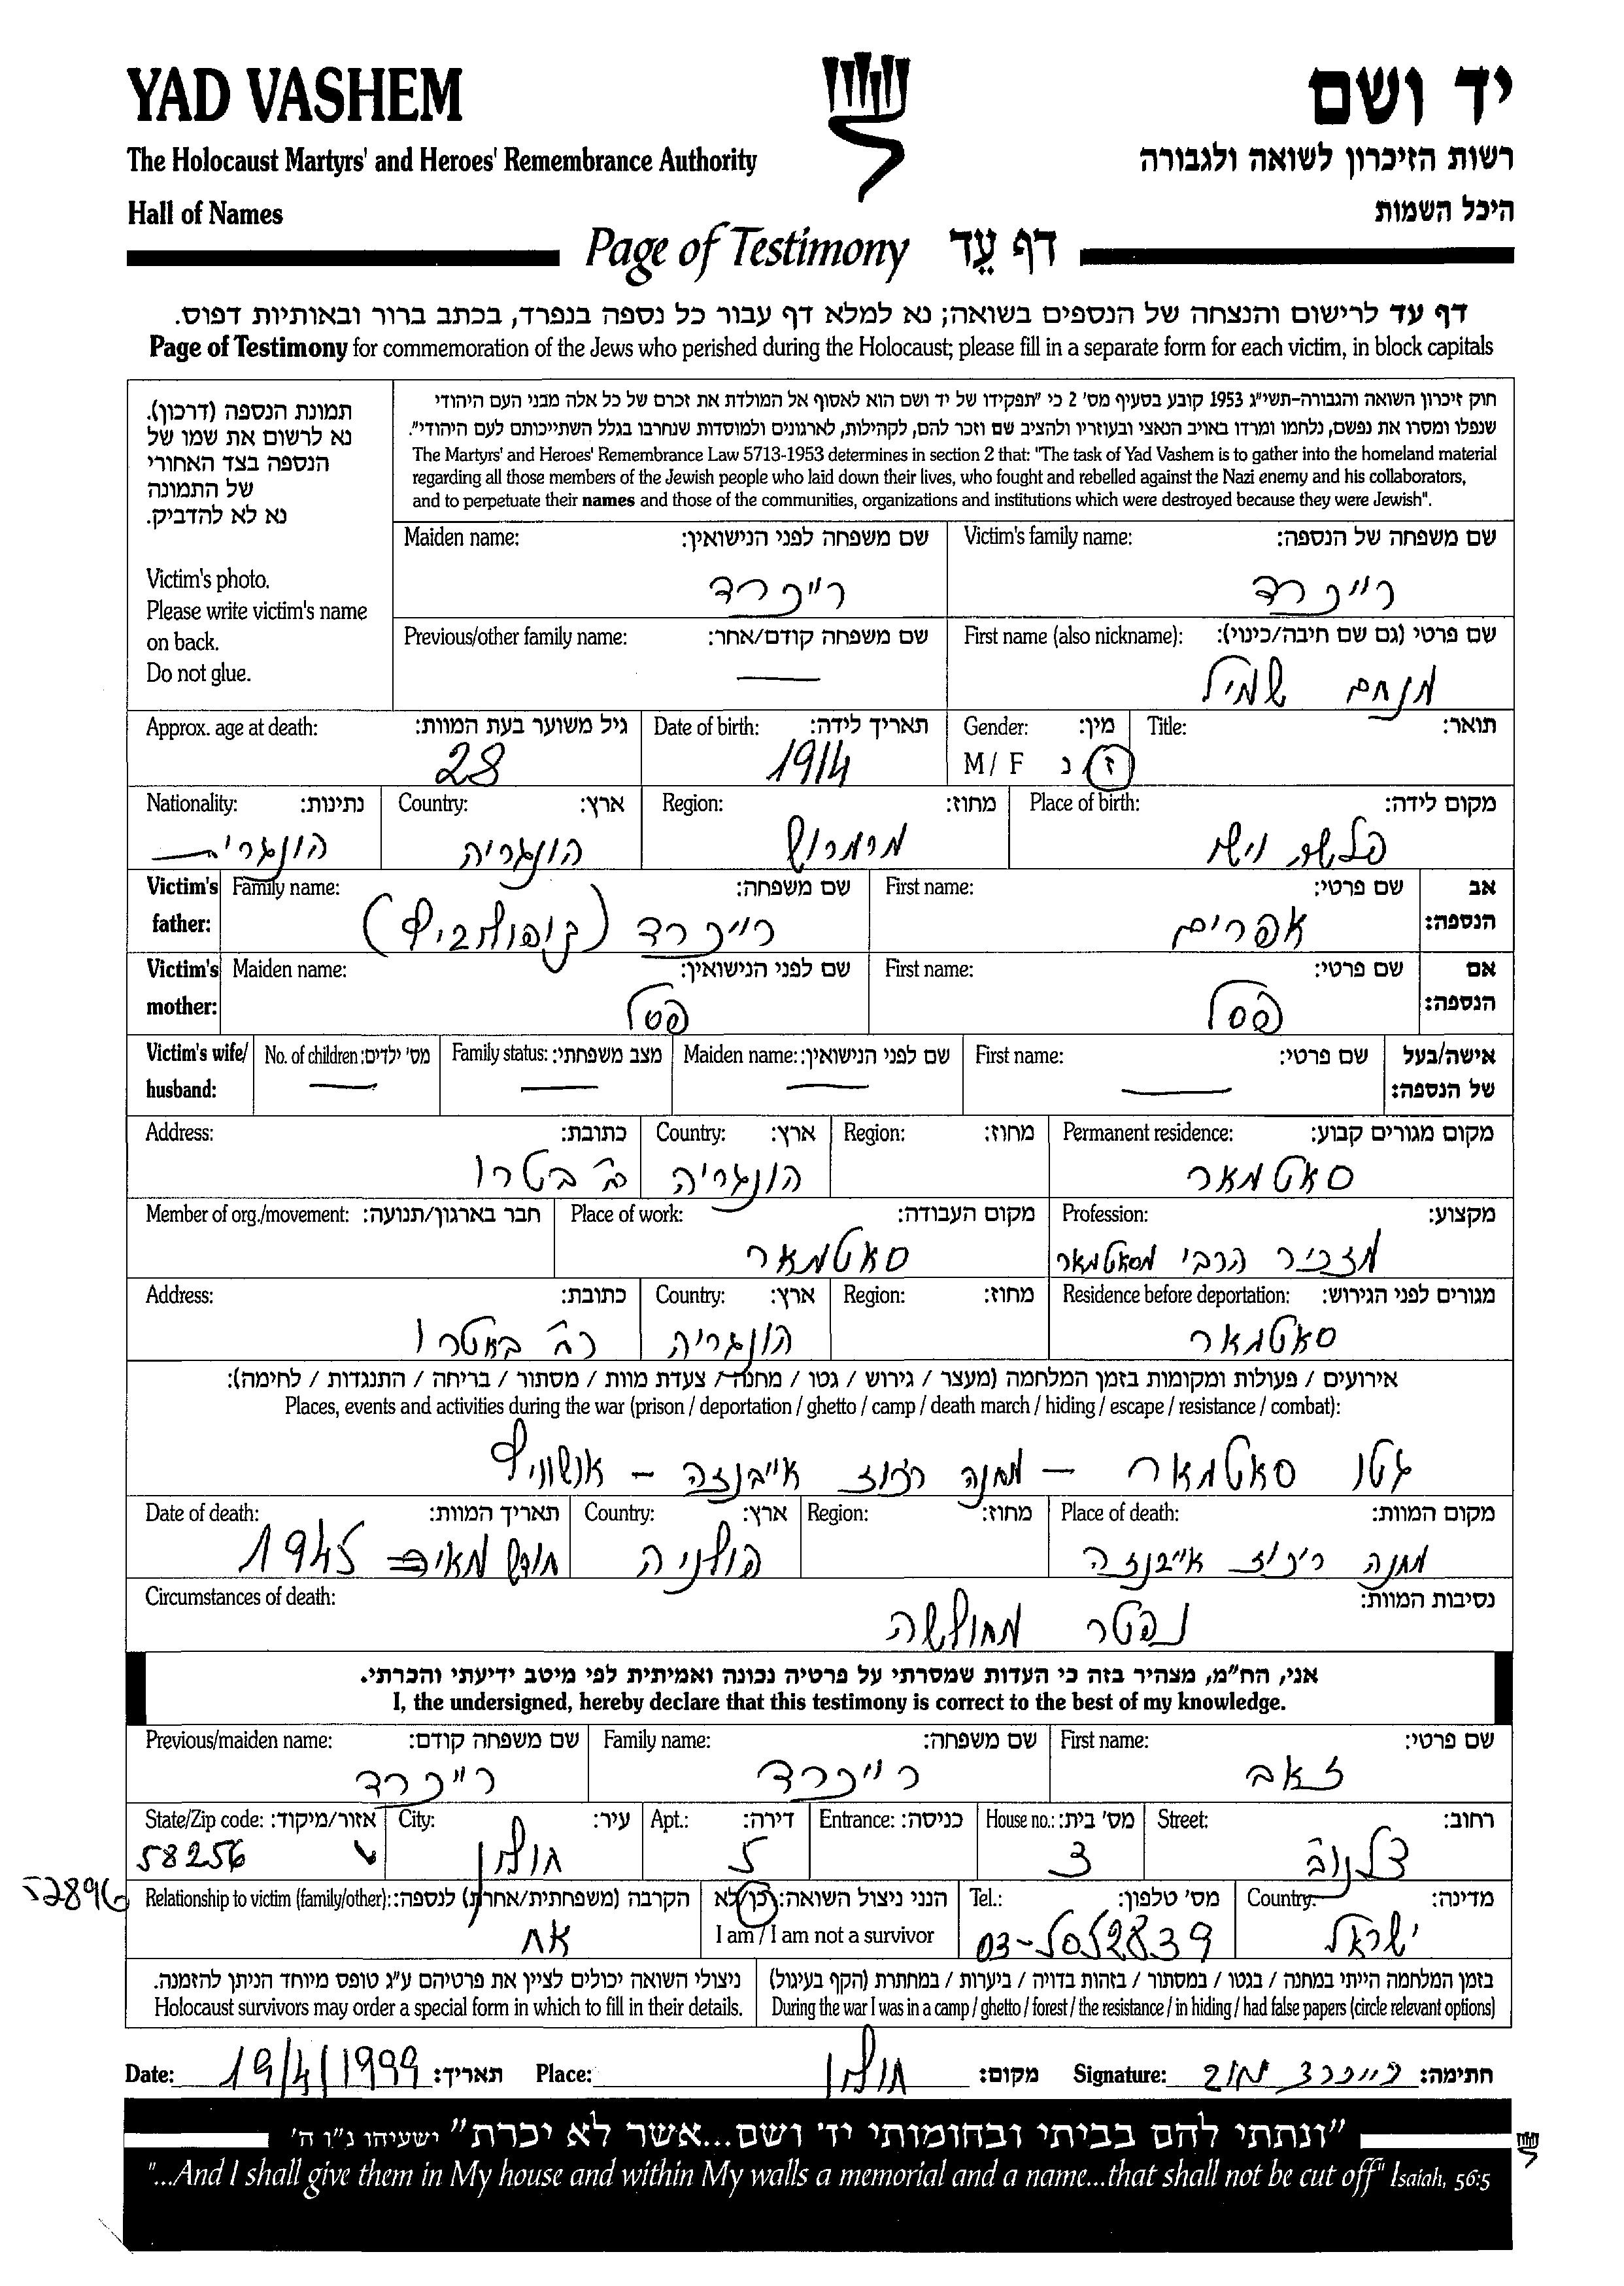 YAD VASHEM
יד ושם
The Holocaust Martyrs' and Heroes' Remembrance Authority
רשות הזיכרון לשואה ולגבורה
Hall of Names
היכל השמות
Page of Testimony דף עֵד
דף עד לרישום והנצחה של הנספים בשואה; נא למלא דף עבור כל נספה בנפרד, בכתב ברור ובאותיות דפוס.
Page of Testimony for commemoration of the Jews who perished during the Holocaust; please fill in a separate form for each victim, in block capitals
תמונת הנספה (דרכון).
נא לרשום את שמו של
הנספה בצד האחורי
של התמונה
נא לא להדביק.
Victim's photo.
Please write victim's name
on back.
Do not glue.
חוק זיכרון השואה והגבורה-תשי"ג 1953 קובע בסעיף מס' 2 כי "תפקידו של יד ושם הוא לאסוף אל המולדת את זכרם של כל אלה מבני העם היהודי
שנפלו ומסרו את נפשם, נלחמו ומרדו באויב הנאצי ובעוזריו ולהציב שם וזכר להם, לקהילות, לארגונים ולמוסדות שנחרבו בגלל השתייכותם לעם היהודי".
The Martyrs' and Heroes' Remembrance Law 5713-1953 determines in section 2 that: "The task of Yad Vashem is to gather into the homeland material
regarding all those members of the Jewish people who laid down their lives, who fought and rebelled against the Nazi enemy and his collaborators,
and to perpetuate their names and those of the communities, organizations and institutions which were destroyed because they were Jewish".
Victim's family name: שם משפחה של הנספה:
רייכרד
Maiden name: שם משפחה לפני הנישואין:
רייכרד
First name (also nickname): שם פרטי (גם שם חיבה/כינוי):
מנחם שמיל
Previous/other family name: שם משפחה קודם/אחר:
Title: תואר:
Gender: מין:
M / F ז / נ
Date of birth: תאריך לידה:
1914
Approx. age at death: גיל משוער בעת המוות:
28
Place of birth: מקום לידה:
Region: מחוז:
מרמרוש
Country: ארץ:
הונגריה
Nationality: נתינות:
הונגרית
Victim's father: אב הנספה:
First name: שם פרטי:
אפרים
Family name: שם משפחה:
רייכרד
Victim's mother: אם הנספה:
First name: שם פרטי:
פסל
Maiden name: שם לפני הנישואין:
Victim's wife/ husband: אישה/בעל של הנספה:
First name: שם פרטי:
Maiden name: שם לפני הנישואין:
Family status: מצב משפחתי:
No. of children: מס' ילדים:
Permanent residence: מקום מגורים קבוע:
סאטמאר
Region: מחוז:
Country: ארץ:
הונגריה
Address: כתובת:
Profession: מקצוע:
מזכיר הרבי מסאטמאר
Place of work: מקום העבודה:
סאטמאר
Member of org./movement: חבר בארגון/תנועה:
Residence before deportation: מגורים לפני הגירוש:
סאטמאר
Region: מחוז:
Country: ארץ:
הונגריה
Address: כתובת:
אירועים / פעולות ומקומות בזמן המלחמה (מעצר / גירוש / גטו / מחנה / צעדת מוות / מסתור / בריחה / התנגדות / לחימה):
Places, events and activities during the war (prison / deportation / ghetto / camp / death march / hiding / escape / resistance / combat):
גטו סאטמאר – מחנה ריכוז אייבנזה – אושוויץ
Place of death: מקום המוות:
מחנה ריכוז אייבנזה
Region: מחוז:
Country: ארץ:
פולניה
Date of death: תאריך המוות:
חודש מאי 1945
Circumstances of death: נסיבות המוות:
נפטר מחולשה
אני, הח"מ, מצהיר בזה כי העדות שמסרתי על פרטיה נכונה ואמיתית לפי מיטב ידיעתי והכרתי.
I, the undersigned, hereby declare that this testimony is correct to the best of my knowledge.
First name: שם פרטי:
זאב
Family name: שם משפחה:
רייכרד
Previous/maiden name: שם משפחה קודם:
רייכרד
Street: רחוב:
House no.: מס' בית:
3
Entrance: כניסה:
Apt.: דירה:
5
City: עיר:
חולון
State/Zip code: אזור/מיקוד:
58256
52896
Country: מדינה:
ישראל
Tel.: מס' טלפון:
03-5052839
הנני ניצול השואה: כן/לא
I am / I am not a survivor
Relationship to victim (family/other): הקרבה (משפחתית/אחרת) לנספה:
אח
בזמן המלחמה הייתי במחנה / בגטו / במסתור / בזהות בדויה / ביערות / במחתרת (הקף בעיגול)
During the war I was in a camp / ghetto / forest / the resistance / in hiding / had false papers (circle relevant options)
ניצולי השואה יכולים לציין את פרטיהם ע"ג טופס מיוחד הניתן להזמנה.
Holocaust survivors may order a special form in which to fill in their details.
Date: 19/4/1999 תאריך: Place: חולון מקום: Signature: חתימה:
"ונתתי להם בביתי ובחומותי יד ושם...אשר לא יכרת" ישעיהו נ"ו ה'
"...And I shall give them in My house and within My walls a memorial and a name...that shall not be cut off" Isaiah, 56:5